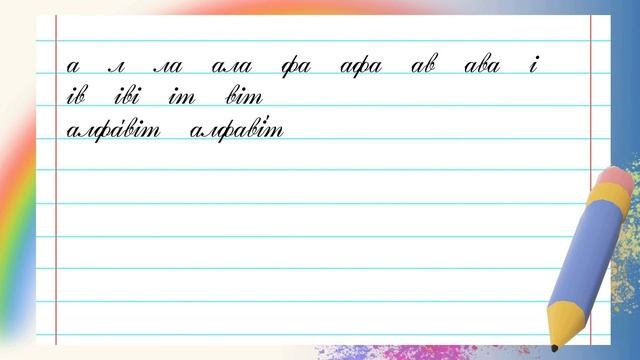 а л ла ала фа афа ав ава і
ів іві іт віт
алфа́віт алфаві́т